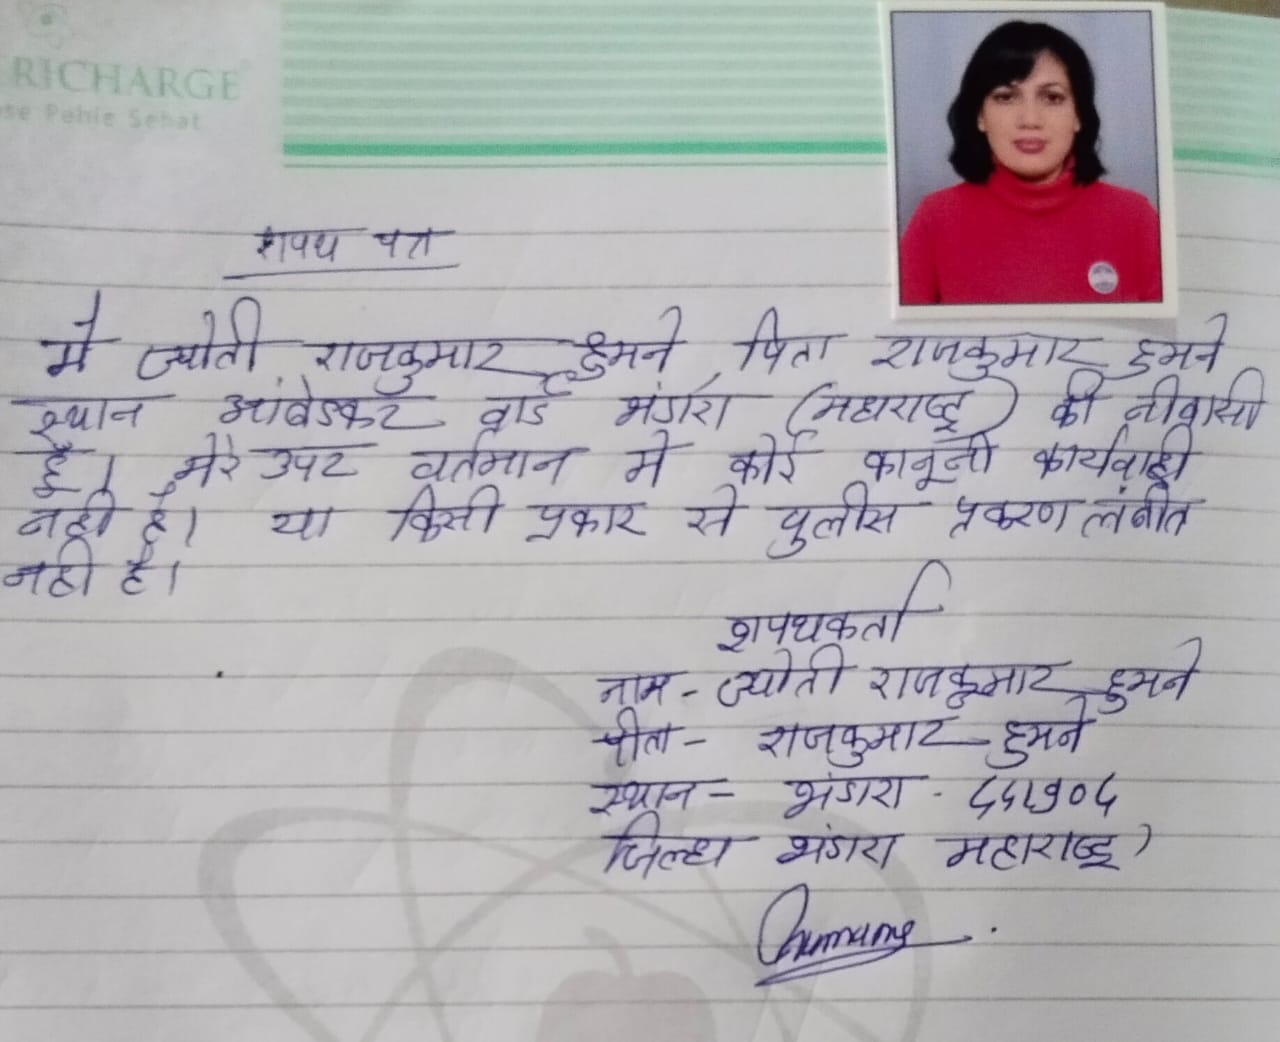 RICHARGE
se Pehle Sehat
शपथ पत्र
मैं ज्योती राजकुमार हुमने पिता राजकुमार हुमने
स्थान आंबेडकर वार्ड भंडारा (महाराष्ट्र) की नीवासी
हूँ। मेरे उपर वर्तमान में कोई कानूनी कार्यवाही
नही है। या किसी प्रकार से पुलीस प्रकरण लंबीत
नही है।
शपथकर्ता
नाम - ज्योती राजकुमार हुमने
पीता - राजकुमार हुमने
स्थान - भंडारा -
जिल्हा भंडारा महाराष्ट्र)